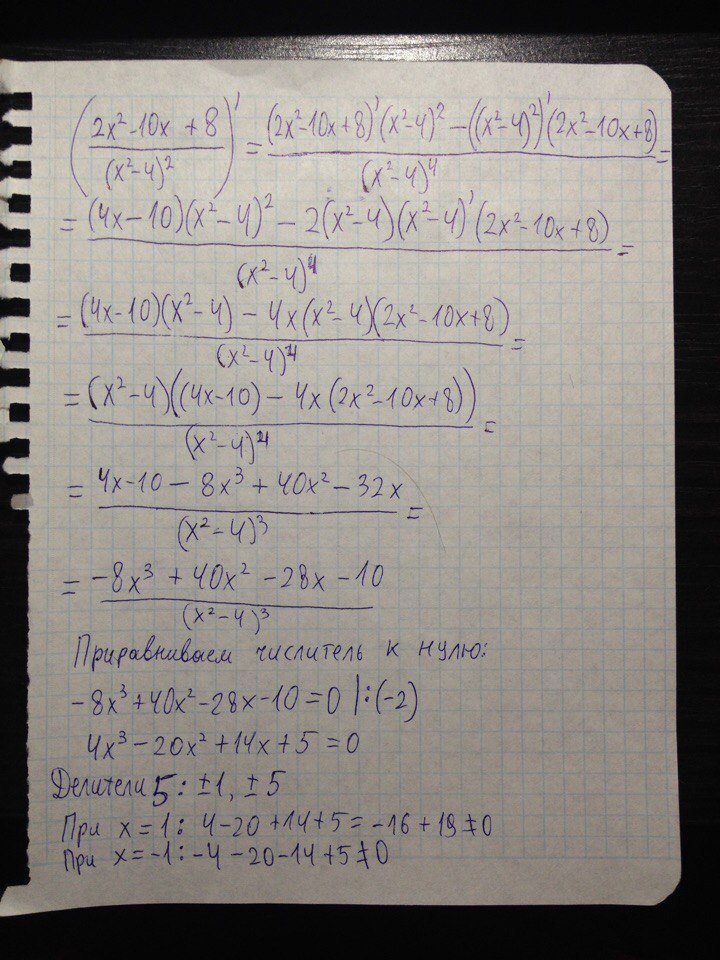 (2x²-10x+8 / (x²-4)²)' = ((2x²-10x+8)'(x²-4)² - ((x²-4)²)'(2x²-10x+8)) / (x²-4)⁴ =
= ((4x-10)(x²-4)² - 2(x²-4)(x²-4)'(2x²-10x+8)) / (x²-4)⁴ =
= ((4x-10)(x²-4) - 4x(x²-4)(2x²-10x+8)) / (x²-4)⁴ =
= (x²-4)((4x-10) - 4x(2x²-10x+8)) / (x²-4)⁴ =
= (4x-10-8x³+40x²-32x) / (x²-4)³ =
= (-8x³+40x²-28x-10) / (x²-4)³
Приравниваем числитель к нулю:
-8x³+40x²-28x-10=0 |:(-2)
4x³-20x²+14x+5=0
Делители 5: ±1, ±5
При x=1: 4-20+14+5=-16+19≠0
При x=-1: -4-20-14+5≠0